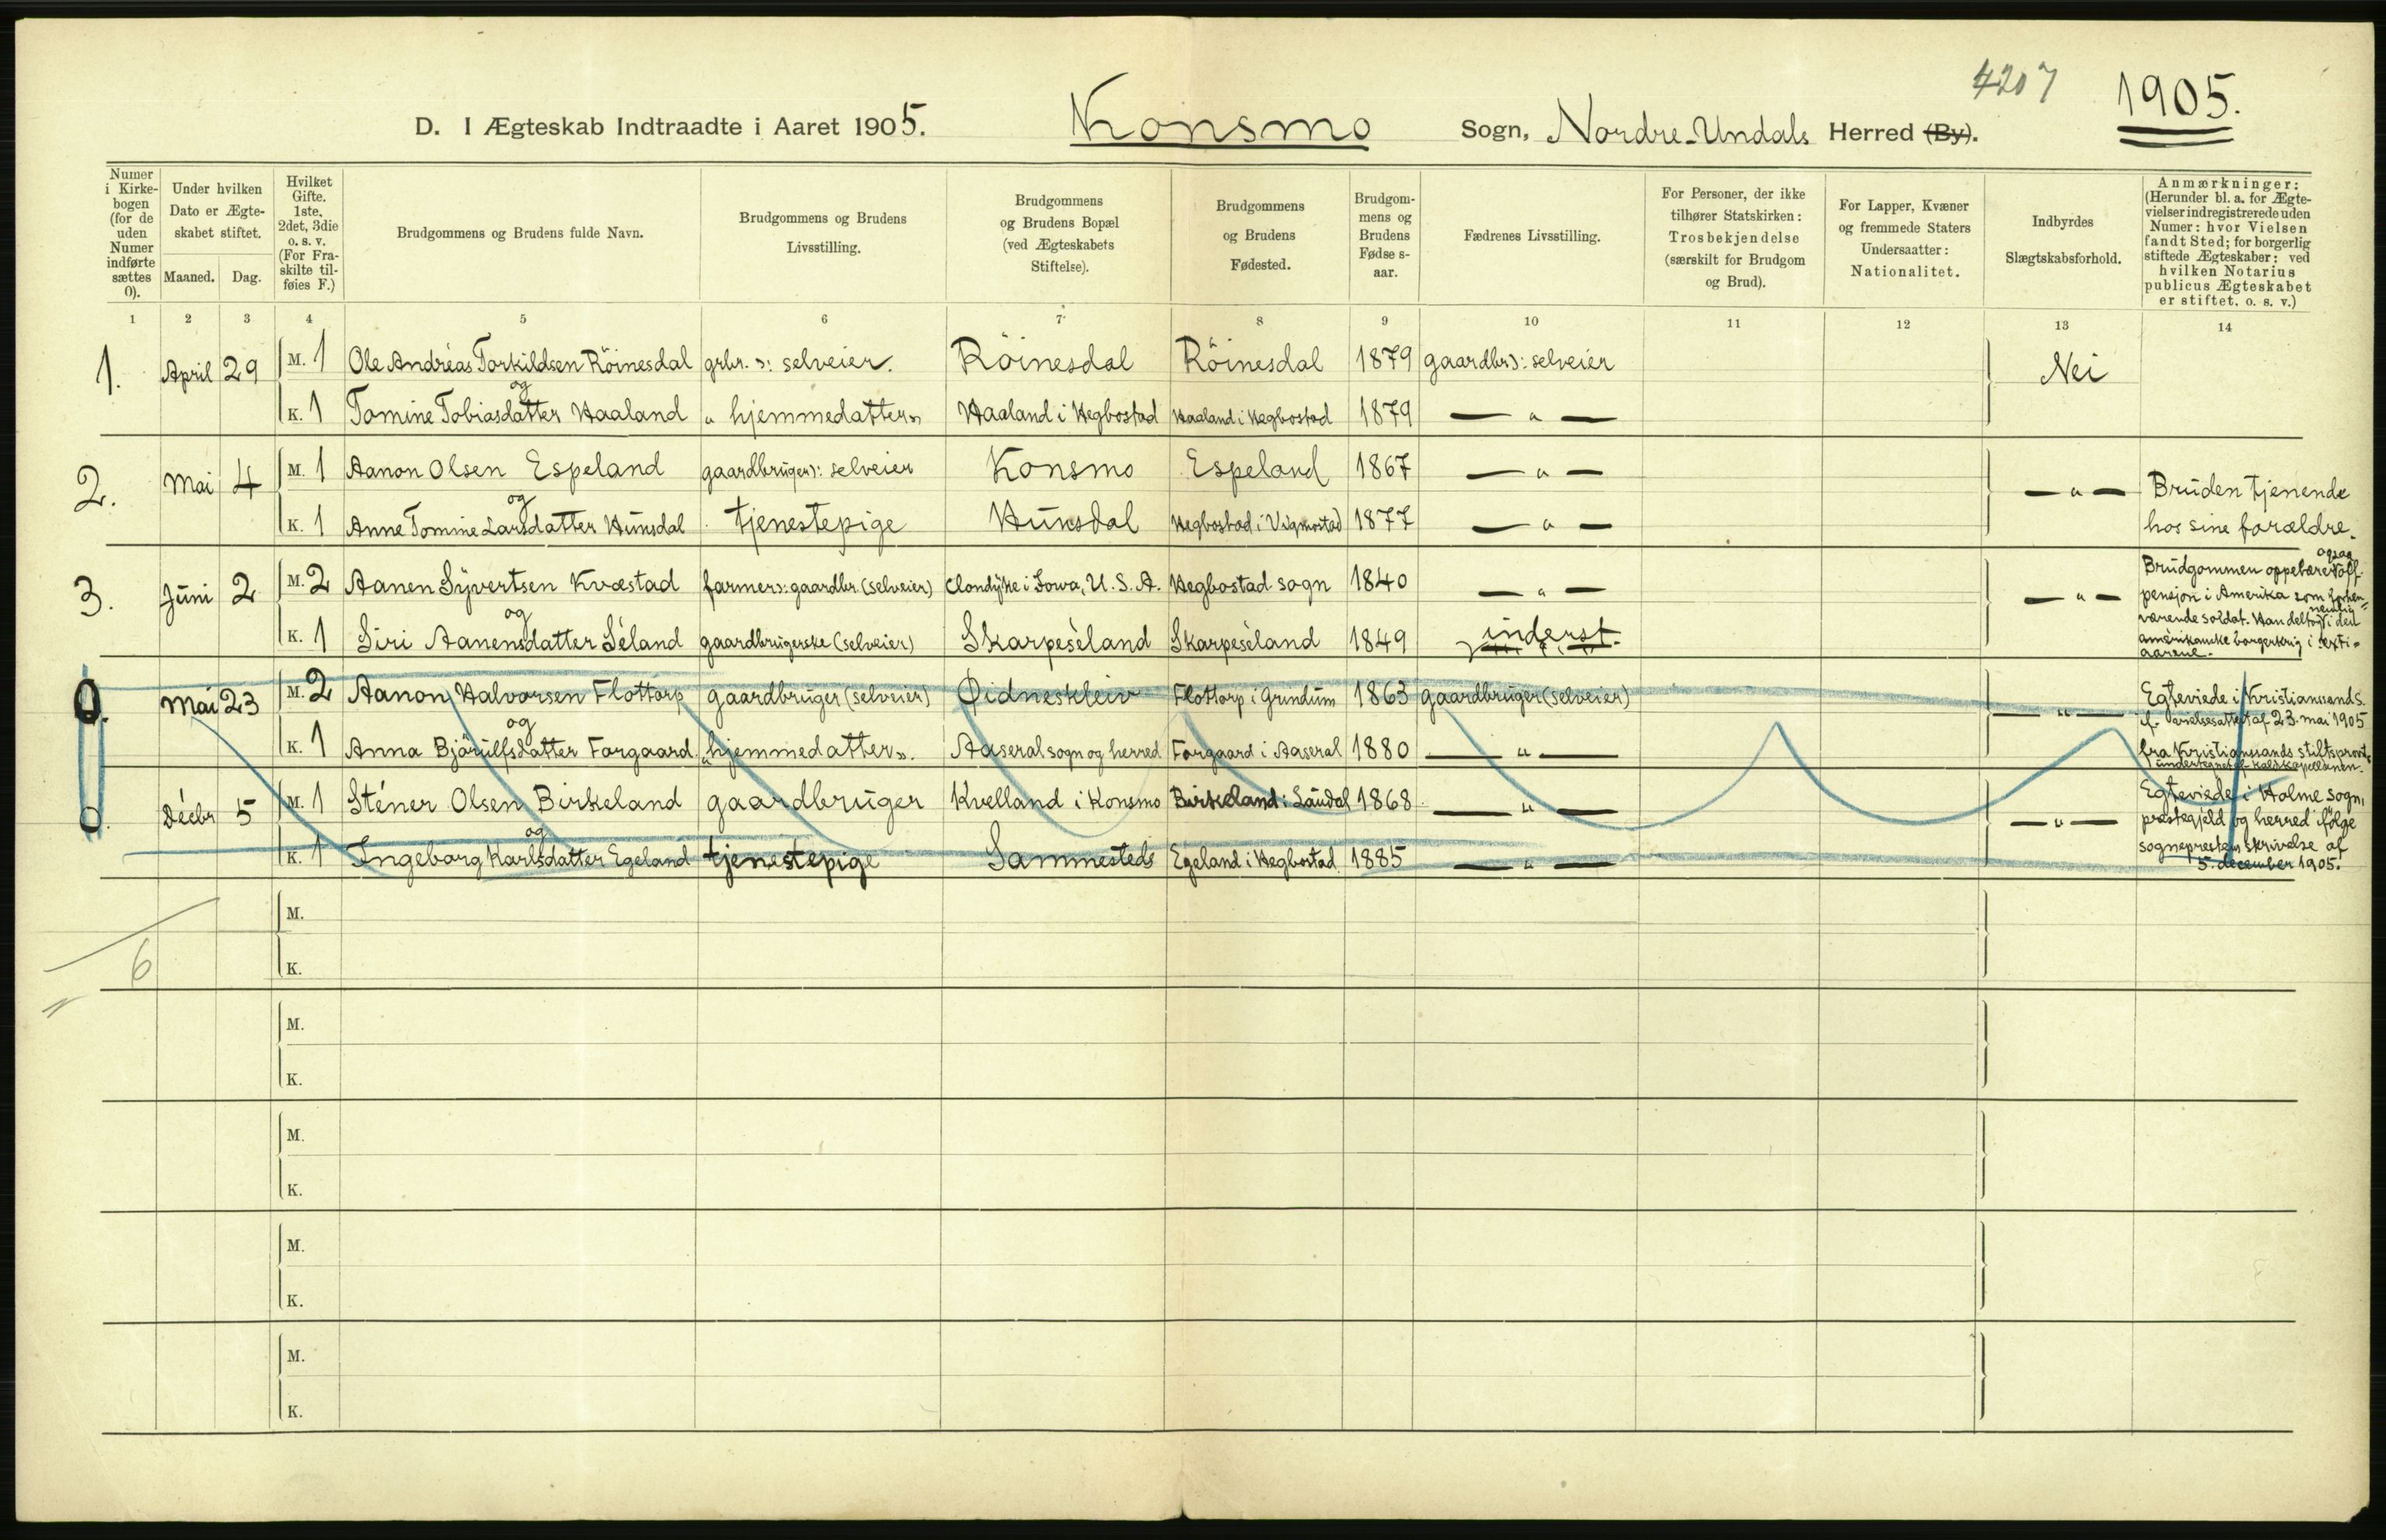 4207
1905.
D. I Ægteskab Indtraadte i Aaret 1905. Konsmo Sogn, Nordre-Undals Herred (By).
Numer i Kirkebogen (for de uden Numer indførte sættes 0).
Under hvilken Dato er Ægteskabet stiftet.
Maaned. Dag.
Hvilket Gifte. 1ste, 2det, 3die o. s. v. (For Fraskilte tilføies F.)
Brudgommens og Brudens fulde Navn.
Brudgommens og Brudens Livsstilling.
Brudgommens og Brudens Bopæl (ved Ægteskabets Stiftelse).
Brudgommens og Brudens Fødested.
Brudgommens og Brudens Fødselsaar.
Fædrenes Livsstilling.
For Personer, der ikke tilhører Statskirken: Trosbekjendelse (særskilt for Brudgom og Brud).
For Lapper, Kvæner og fremmede Staters Undersaatter: Nationalitet.
Indbyrdes Slægtskabsforhold.
Anmærkninger: (Herunder bl. a. for Ægtevielser indregistrerede uden Numer: hvor Vielsen fandt Sted; for borgerlig stiftede Ægteskaber: ved hvilken Notarius publicus Ægteskabet er stiftet. o. s. v.)
1 2 3 4 5 6 7 8 9 10 11 12 13 14
1. April 29 M. 1 Ole Andréas Torkildsen Röinesdal grbr. ɔ: selveier. Röinesdal Röinesdal 1879 gaardbr ɔ: selveier Nei
og
K. 1 Tomine Tobiasdatter Haaland „ hjemmedatter" Haaland i Hegbostad Haaland i Hegbostad 1879 — " —
2. Mai 4 M. 1 Aanon Olsen Espeland gaardbruger ɔ: selveier Konsmo Espeland 1867 — " — — " — Bruden tjenende
og
K. 1 Anne Tomine Larsdatter Hunsdal tjenestepige Hunsdal Hegbostad i Vigmostad 1877 — " — hos sine forældre.
3. Juni 2 M. 2 Aanen Syvertsen Kvæstad farmer ɔ: gaardbr. (selveier) Clondyke i Iowa, U. S. A. Hegbostad sogn 1840 — " — — " — Brudgommen oppebærer ogsaa off. pensjon i Amerika som forhenværende soldat. Han deltog nemlig i den amerikanske borgerkrig i sextiaarene.
og
K. 1 Siri Aanensdatter Séland gaardbrugerske (selveier) Skarpeséland Skarpeséland 1849 inderst.
0. Mai 23 M. 2 Aanon Halvorsen Flottorp gaardbruger (selveier) Øidneskleiv Flottorp i Grindum 1863 gaardbruger (selveier) — " — Egteviede i Kristianssands. if. vielsesattest af 23. mai 1905 fra Kristianssands stiftsprovst
og
K. 1 Anna Bjarulfsdatter Forgaard „hjemmedatter". Aaseral sogn og herred Forgaard i Aaseral 1880 — " —
0. Décbr 5 M. 1 Sténer Olsen Birkeland gaardbruger Kvelland i Konsmo Birkeland i Laudal 1868 — " — — " — Egteviede i Holme sogn, præstegjeld og herred ifølge sogneprestens skrivelse af 5. december 1905.
og
K. 1 Ingeborg Karlsdatter Egeland tjenestepige Sammesteds Egeland i Hegbostad 1885 — " —
M.
6 K.
M.
K.
M.
K.
M.
K.
M.
K.